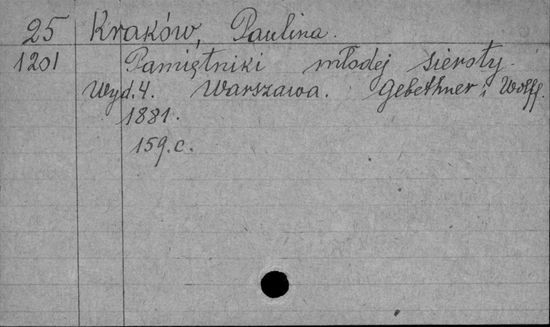 25 Kraków, Paulina.
1201 Pamiętniki młodej sieroty.
Wyd. 4. Warszawa. Gebethner i Wolff.
1881.
159.c.